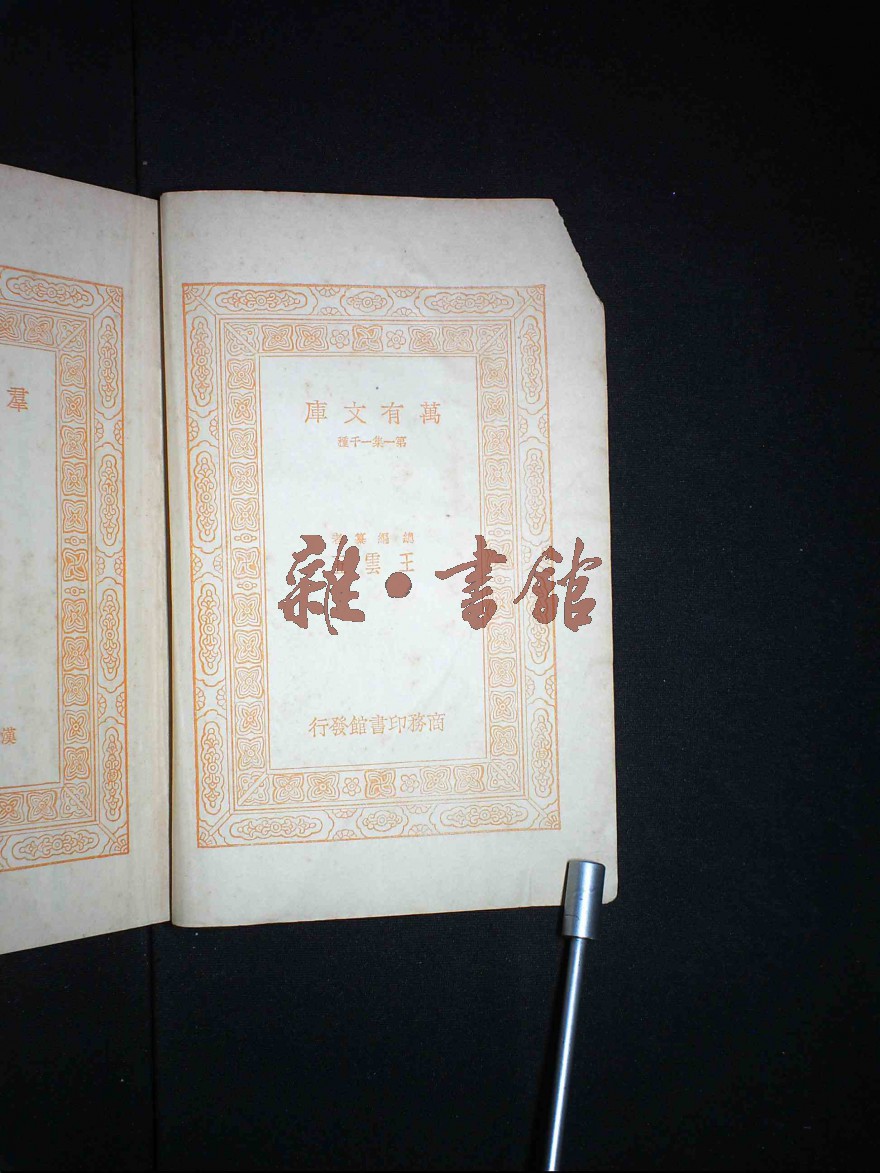 萬有文庫
第一集一千種
總編纂者
王雲五
商務印書館發行
羣
漢
雜·書館